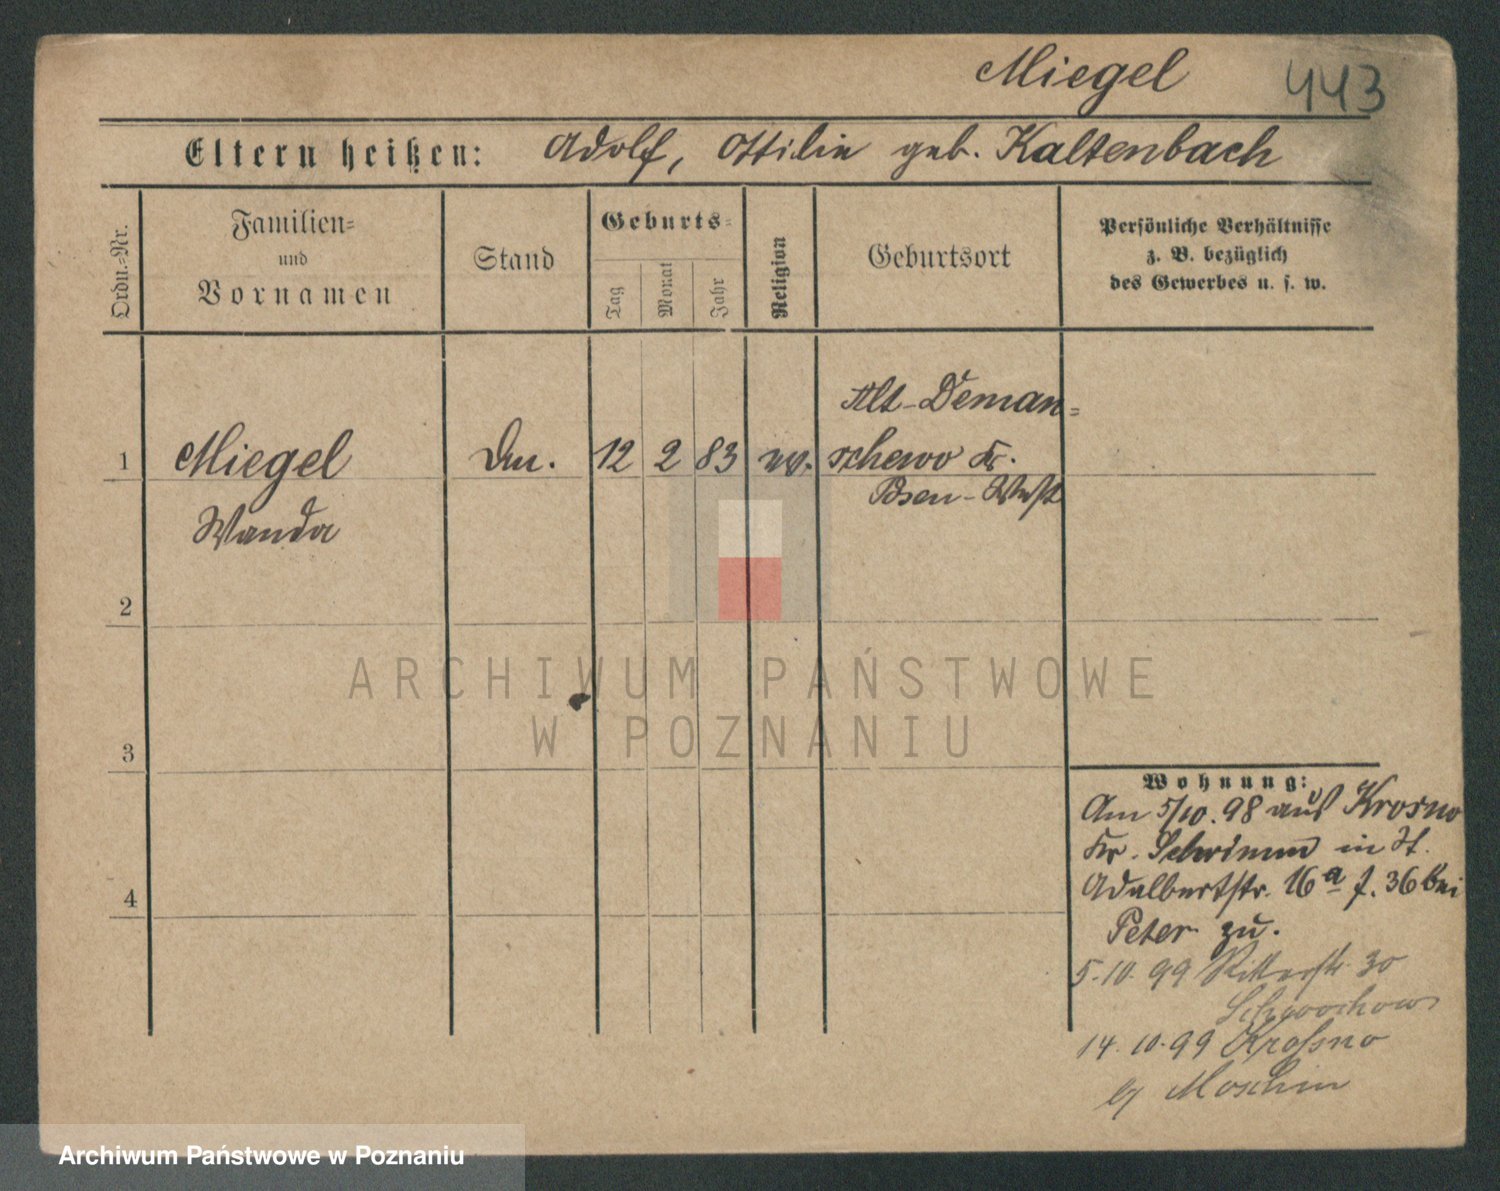 Miegel 443
Eltern heißen: Adolf, Ottilie geb. Kaltenbach
Ordn.-Nr.
Familien-
und
Vornamen
Stand
Geburts-
Tag
Monat
Jahr
Religion
Geburtsort
Persönliche Verhältnisse
z. B. bezüglich
des Gewerbes u. s. w.
1
Miegel
Wanda
12 2 83 ev.
Alt-Deman=
schewo Kr.
Posen-West
2
3
4
Wohnung:
Am 5/10. 98 aus Krosno
Kr. Schrimm in St.
Adalbertstr. 16a f. 36 bei
Peter zu.
5.10.99 Ritterstr. 30
14.10.99 Krossno
b/ Moschin
ARCHIWUM PAŃSTWOWE
W POZNANIU
Archiwum Państwowe w Poznaniu